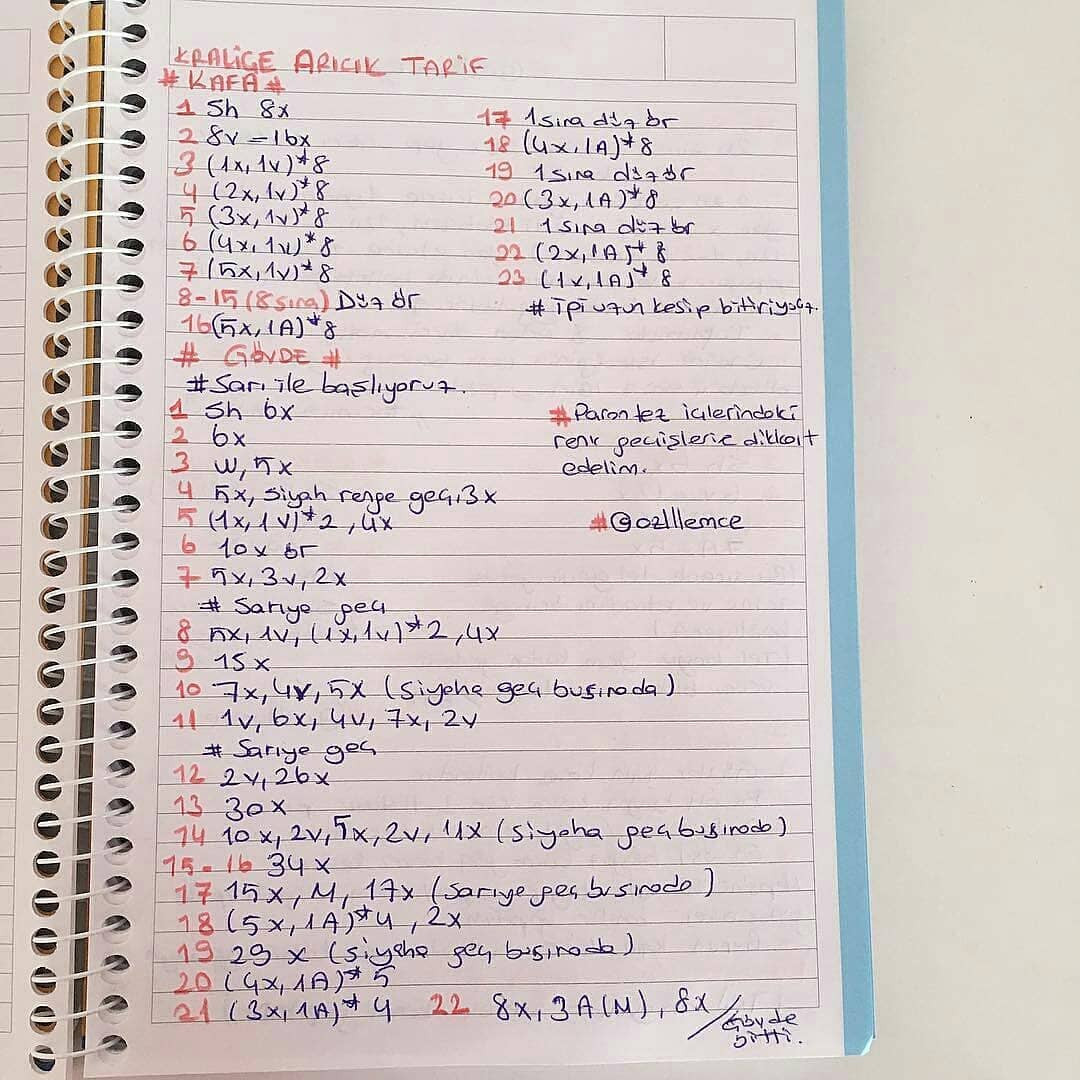 KRALİÇE ARICIK TARİF
# KAFA #
1 Sh 8x
2 8v = 16x
3 (1x, 1v)*8
4 (2x, 1v)*8
5 (3x, 1v)*8
6 (4x, 1v)*8
7 (5x, 1v)*8
8-15 (8 sıra) Düz ör
16 (5x, 1A)*8
17 1 sıra düz ör
18 (4x, 1A)*8
19 1 sıra düz ör
20 (3x, 1A)*8
21 1 sıra düz ör
22 (2x, 1A)* 8
23 (1x, 1A)* 8
# İpi uzun kesip bitiriyoruz.
# GÖVDE #
# Sarı ile başlıyoruz.
1 Sh 6x
2 6x
3 W, 5x
4 5x, siyah renge geç, 3x
5 (1x, 1v)*2, 4x
6 10x ör
7 5x, 3v, 2x
# Sarıya geç
8 5x, 1v, (1x, 1v)*2, 4x
9 15x
10 7x, 4v, 5x (siyaha geç bu sırada)
11 1v, 6x, 4v, 7x, 2v
# Sarıya geç
12 2v, 26x
13 30x
14 10x, 2v, 5x, 2v, 11x (siyaha geç bu sırada)
15-16 34x
17 15x, M, 17x (sarıya geç bu sırada)
18 (5x, 1A)*4, 2x
19 29 x (siyaha geç bu sırada)
20 (4x, 1A)* 5
21 (3x, 1A)* 4
22 8x, 3A(M), 8x / Gövde
bitti.
# Parantez içlerindeki
renk geçişlerine dikkat
edelim.
# @ozlllemce